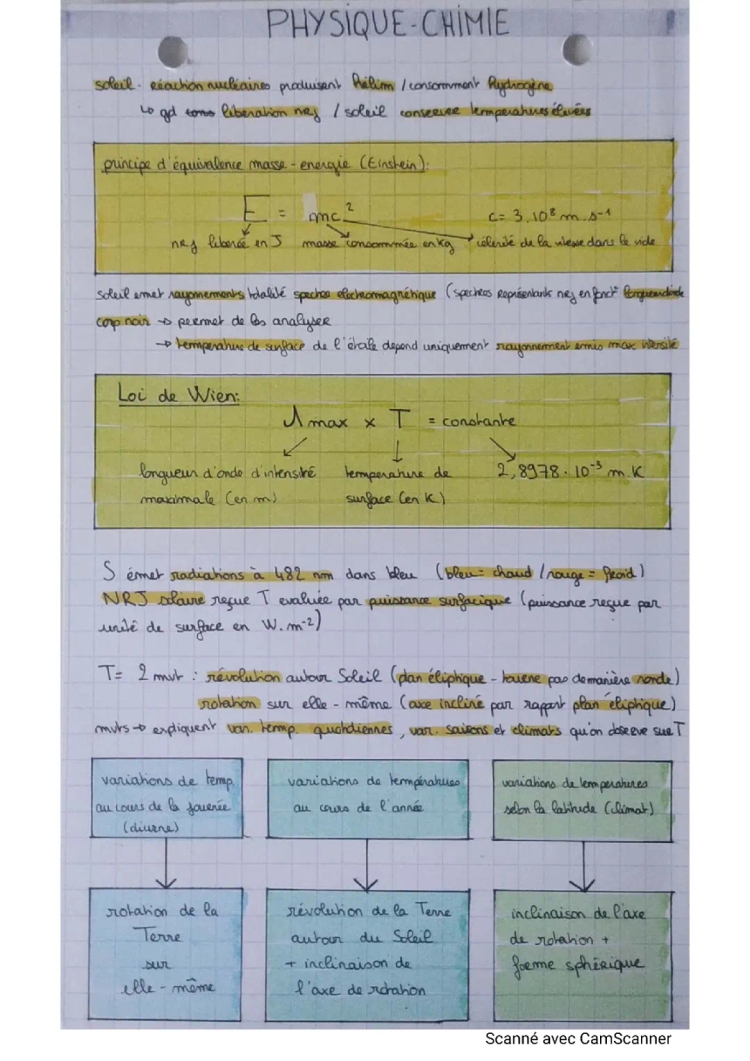 PHYSIQUE-CHIMIE
soleil - réaction nucléaires produisent hélium / consomment hydrogène
↳ gd libération nrj / soleil conserve températures élevées
principe d'équivalence masse-energie (Einstein):
E = mc²
c = 3.10⁸ m.s⁻¹
nrj liberée en J masse consommée en kg célérité de la vitesse dans le vide
soleil emet rayonnements totalité spectre electromagnétique (spectres représentants nrj en fonct° longueur d'onde
corp noir → permet de les analyser
→ temperature de surface de l'étoile depend uniquement rayonnement emis max intensité
Loi de Wien:
λ max x T = constante
longueur d'onde d'intensité temperature de 2,8978 . 10⁻³ m.K
maximale (en m) surface (en K)
S émet radiations à 482 nm dans bleu (bleu = chaud / rouge = froid)
NRJ solaire reçue T evaluée par puissance surfacique (puissance reçue par
unité de surface en W.m⁻²)
T = 2 mvt : révolution autour Soleil (plan éliptique - tourne pas de manière ronde)
rotation sur elle-même (axe incliné par rapport plan éliptique)
mvts → expliquent var. temp. quotidiennes, var. saisons et climats qu'on observe sur T
variations de temp
au cours de la journée
(diurne)
variations de températures
au cours de l'année
variations de temperatures
selon la latitude (climat)
rotation de la
Terre
sur
elle-même
révolution de la Terre
autour du Soleil
+ inclinaison de
l'axe de rotation
inclinaison de l'axe
de rotation +
forme sphérique
Scanné avec CamScanner